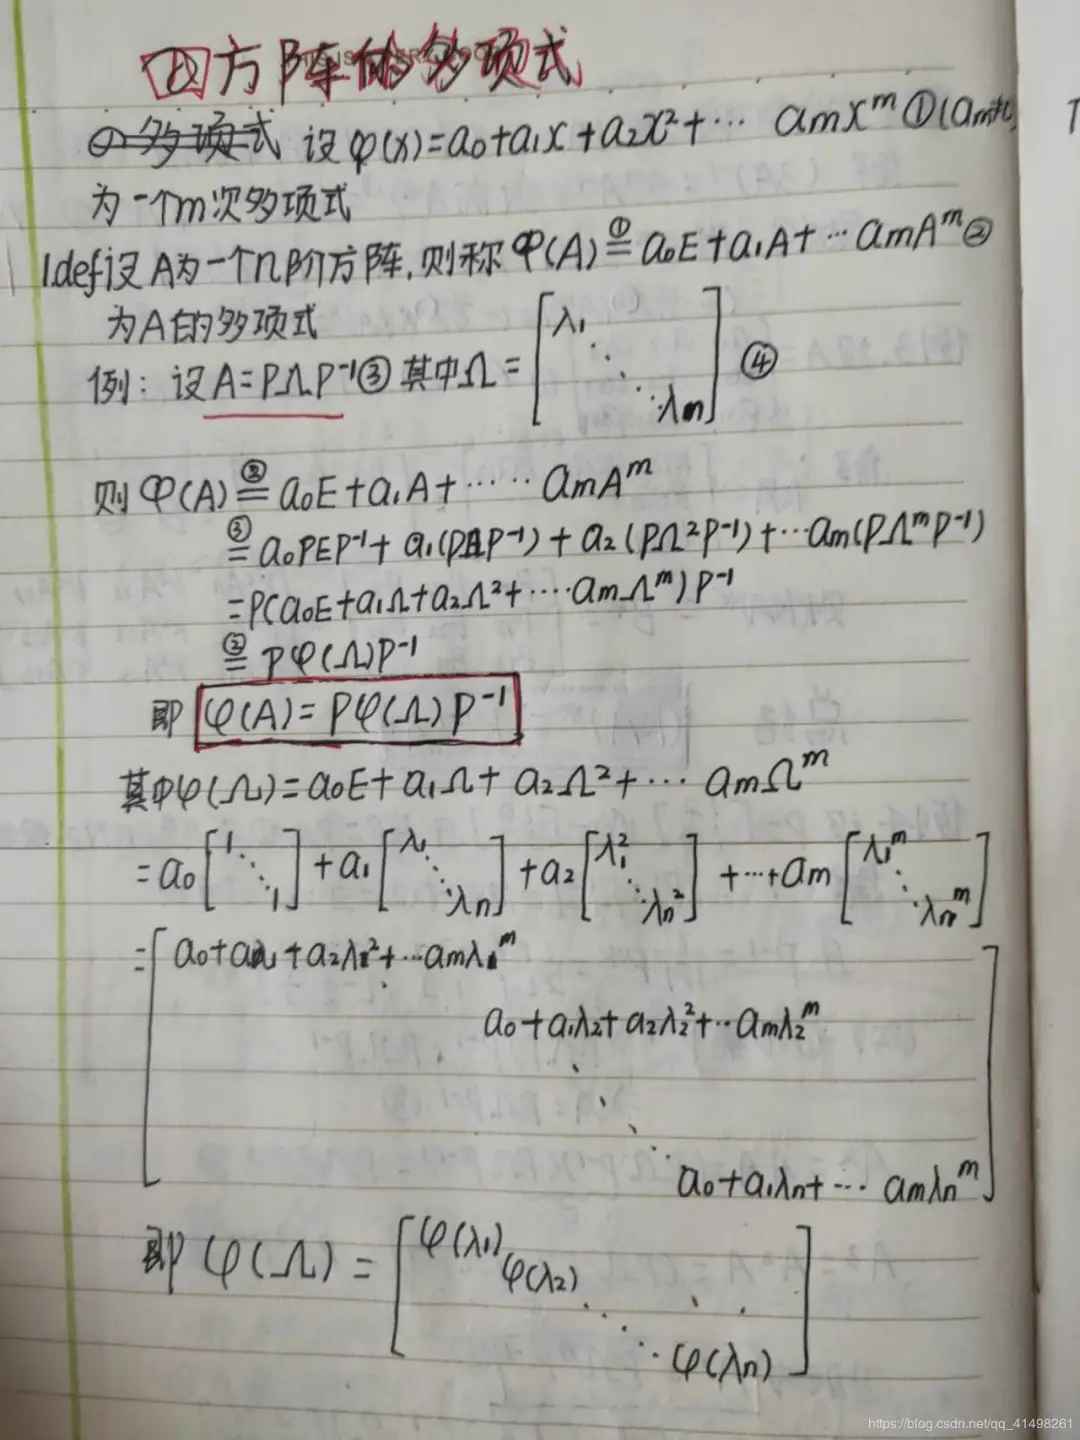 方阵的多项式
多项式 设 φ(x)=a₀+a₁x+a₂x²+… aₘxᵐ ①(aₘ≠0)
为一个m次多项式
1.def设A为一个n阶方阵,则称 φ(A) ①= a₀E+a₁A+…aₘAᵐ②
为A的多项式
例：设A=PΩP⁻¹③ 其中Ω= [λ₁ ⋱ λn] ④
则 φ(A) ②= a₀E+a₁A+…… aₘAᵐ
③= a₀PEP⁻¹+ a₁(PΩP⁻¹)+a₂(PΩ²P⁻¹)+…aₘ(PΩᵐP⁻¹)
=P(a₀E+a₁Ω+a₂Ω²+….aₘΩᵐ)P⁻¹
②= Pφ(Ω)P⁻¹
即 φ(A)= Pφ(Ω)P⁻¹
其中φ(Ω)=a₀E+a₁Ω+a₂Ω²+… aₘΩᵐ
=a₀[1 ⋱ 1]+a₁[λ₁ ⋱ λn]+a₂[λ₁² ⋱ λn²]+…+aₘ[λ₁ᵐ ⋱ λnᵐ]
=[a₀+a₁λ₁+a₂λ₁²+…aₘλ₁ᵐ
a₀+a₁λ₂+a₂λ₂²+…aₘλ₂ᵐ
⋱
a₀+a₁λn+… aₘλnᵐ]
即 φ(Ω)= [φ(λ₁)
φ(λ₂)
⋱
φ(λn)]
https://blog.csdn.net/qq_41498261